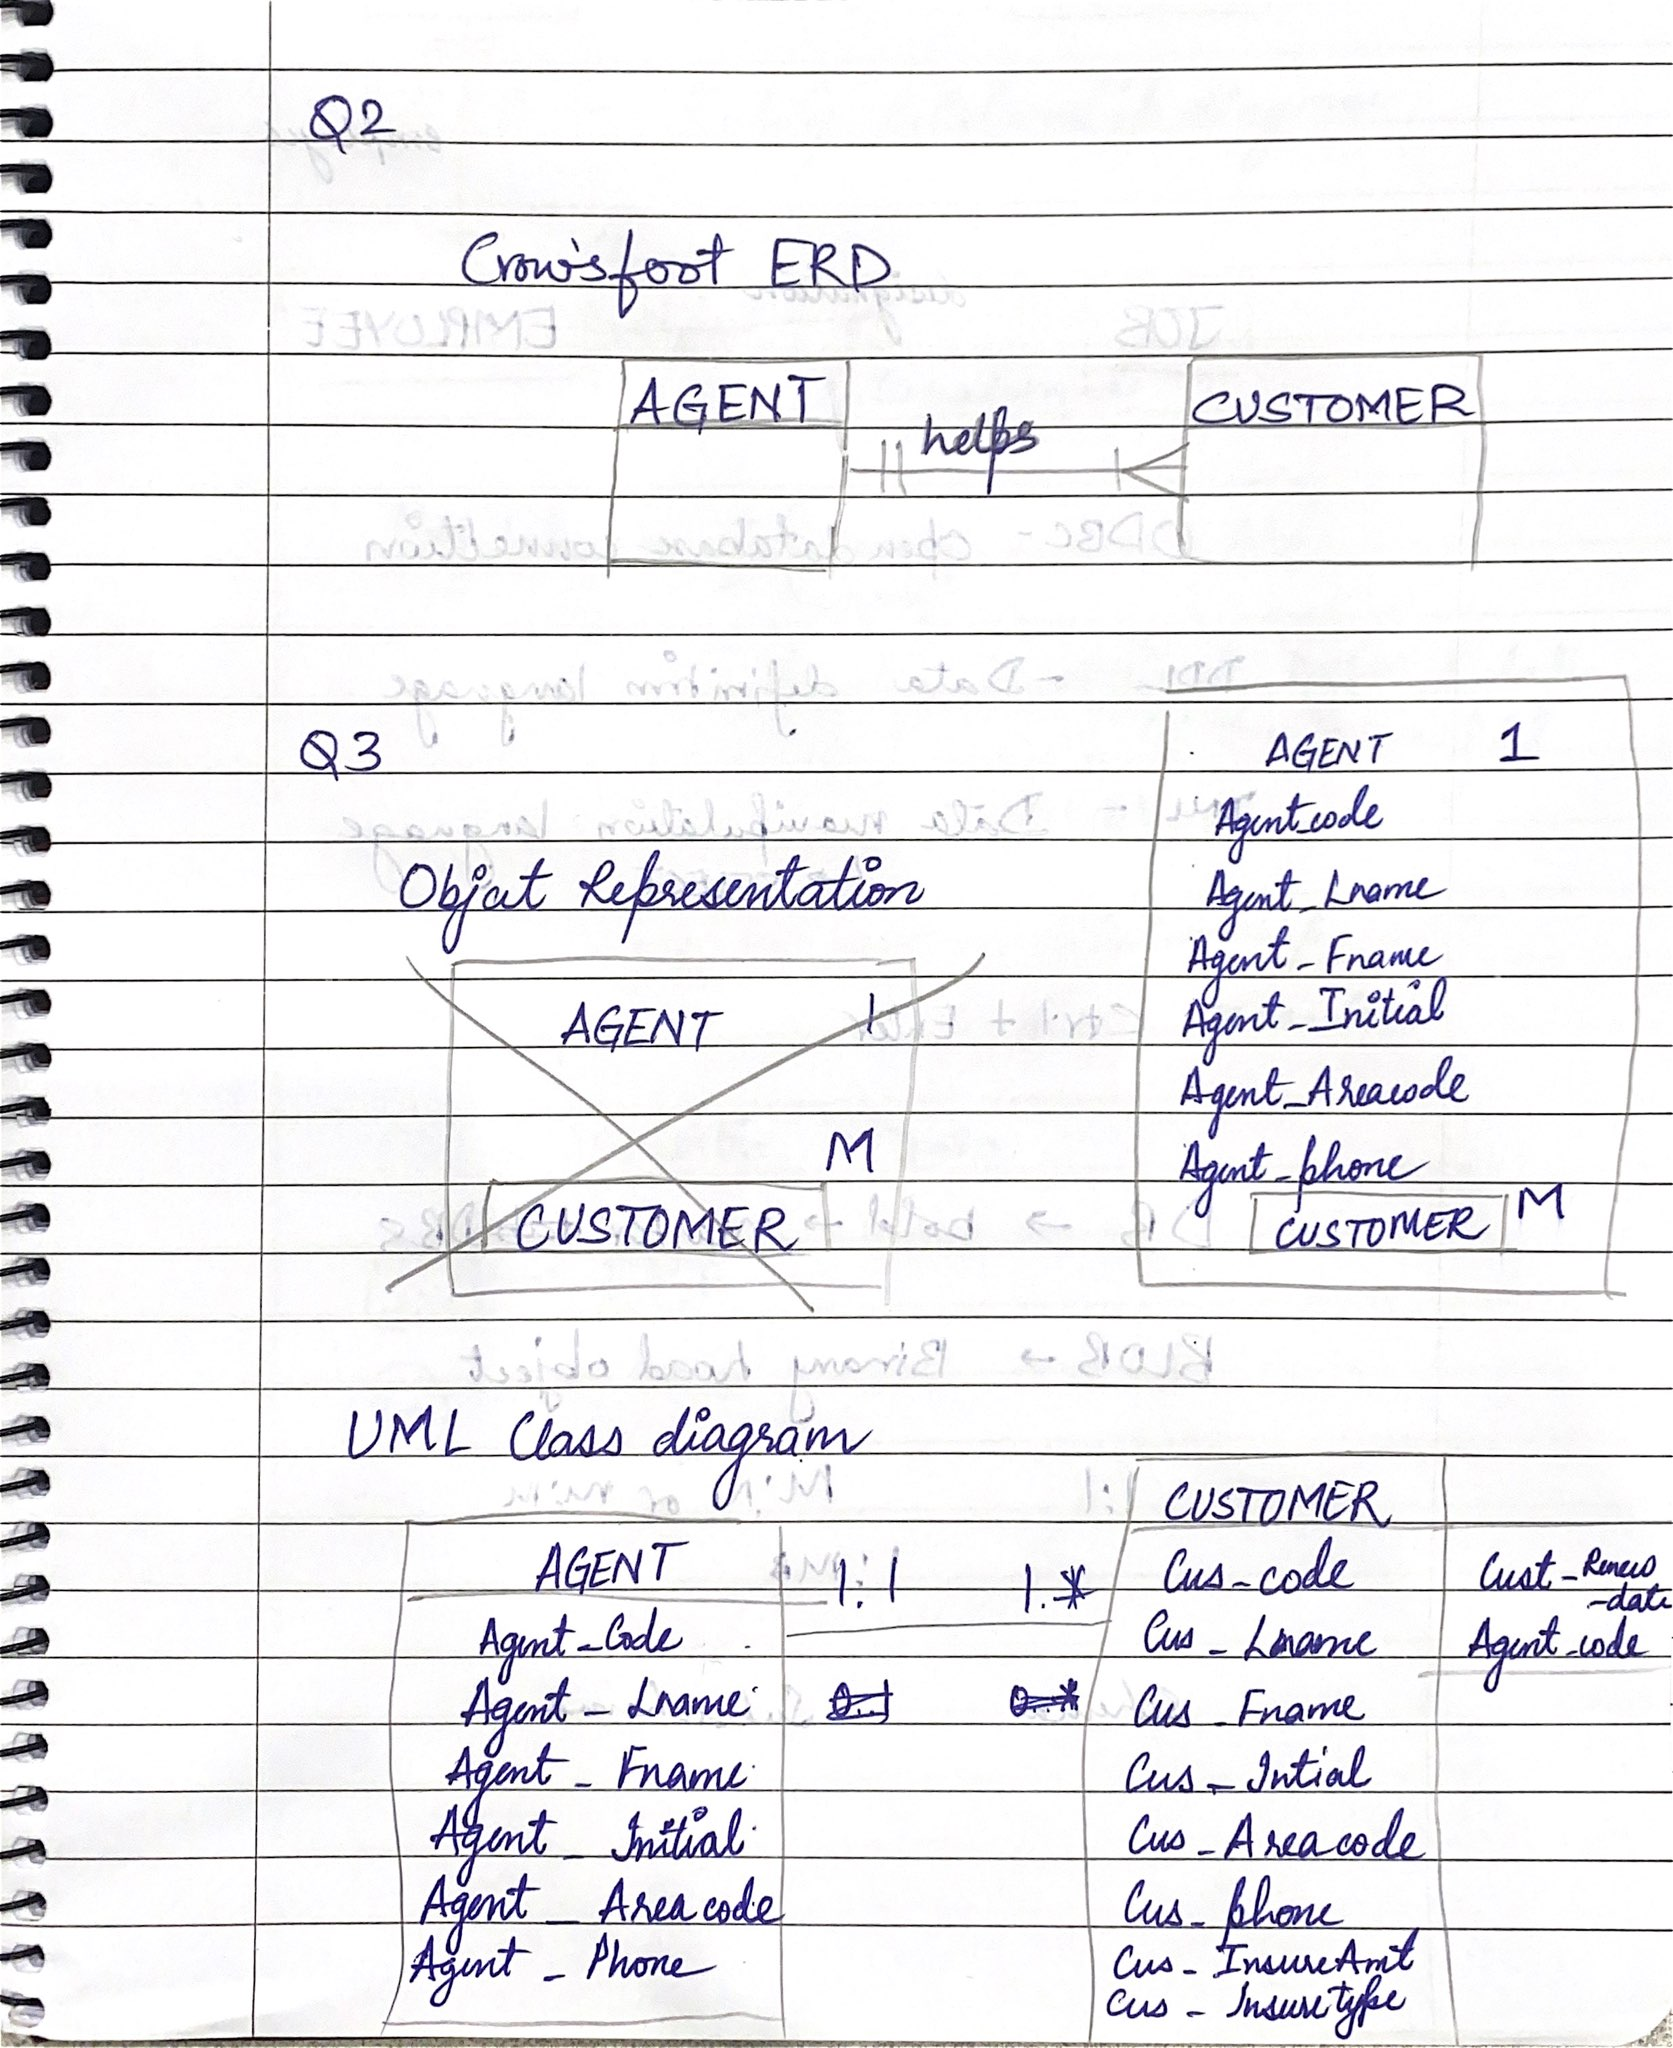 Q2
Crow'sfoot ERD
AGENT
helps
CUSTOMER
Q3
Object Representation
AGENT 1
M
CUSTOMER
AGENT 1
Agent_code
Agent_Lname
Agent_Fname
Agent_Initial
Agent_Areacode
Agent_phone
CUSTOMER M
UML Class diagram
AGENT
Agent_Code
Agent_Lname
Agent_Fname
Agent_Initial
Agent_Areacode
Agent_Phone
1..1 1..*
0..1 0..*
CUSTOMER
Cus_code
Cus_Lname
Cus_Fname
Cus_Intial
Cus_Areacode
Cus_phone
Cus_InsureAmt
Cus_Insuretype
Cust_Renew
_date
Agent_code